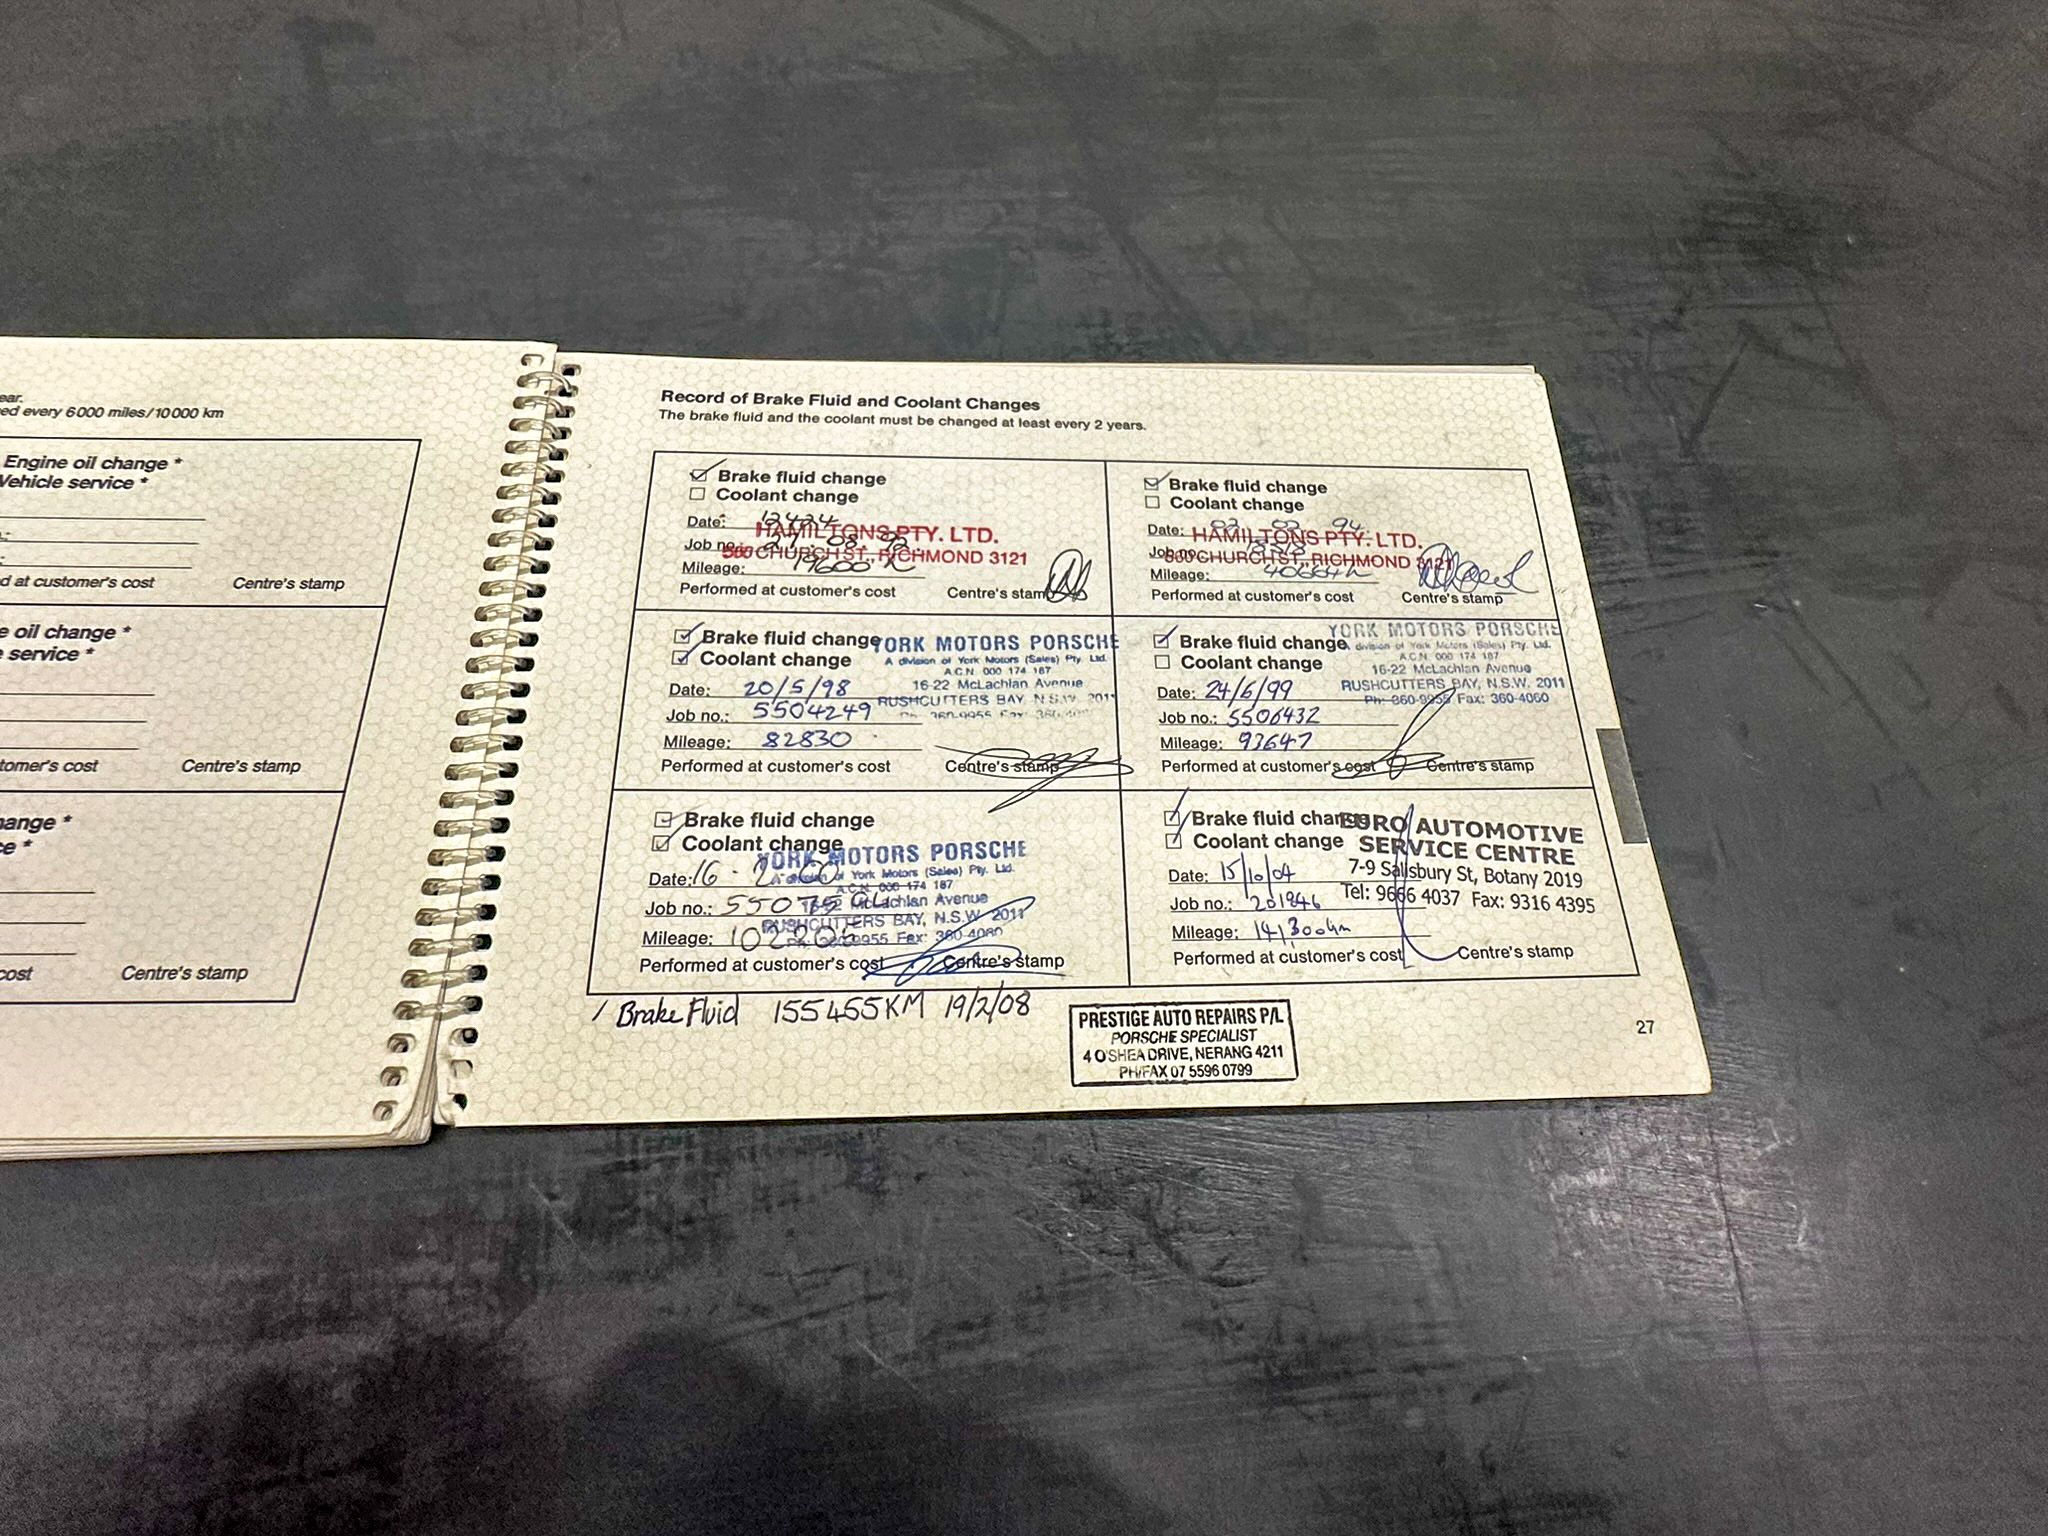 ear.
ed every 6000 miles/10000 km
Engine oil change *
Vehicle service *
d at customer's cost Centre's stamp
e oil change *
service *
tomer's cost Centre's stamp
ange *
ce *
cost Centre's stamp
Record of Brake Fluid and Coolant Changes
The brake fluid and the coolant must be changed at least every 2 years.
Brake fluid change
Coolant change
Date: 12424
HAMILTONS PTY. LTD.
Job no.: 27 08 92
560 CHURCH ST., RICHMOND 3121
Mileage: 19600
Performed at customer's cost Centre's stamp
Brake fluid change
Coolant change
Date: 02 02 94
HAMILTONS PTY. LTD.
Job no.:
560 CHURCH ST., RICHMOND 3121
Mileage:
Performed at customer's cost Centre's stamp
Brake fluid change
Coolant change
YORK MOTORS PORSCHE
A division of York Motors (Sales) Pty. Ltd.
A.C.N. 000 174 187
16-22 McLachlan Avenue
RUSHCUTTERS BAY, N.S.W. 2011
Ph: 360-9955 Fax: 360-4060
Date: 20/5/98
Job no.: 5504249
Mileage: 82830
Performed at customer's cost Centre's stamp
Brake fluid change
Coolant change
YORK MOTORS PORSCHE
A division of York Motors (Sales) Pty. Ltd.
A.C.N. 000 174 187
16-22 McLachlan Avenue
RUSHCUTTERS BAY, N.S.W. 2011
Ph: 360-9955 Fax: 360-4060
Date: 24/6/99
Job no.: 5506432
Mileage: 93647
Performed at customer's cost Centre's stamp
Brake fluid change
Coolant change
YORK MOTORS PORSCHE
A division of York Motors (Sales) Pty. Ltd.
A.C.N. 000 174 187
16-22 McLachlan Avenue
RUSHCUTTERS BAY, N.S.W. 2011
Ph: 360-9955 Fax: 360-4060
Date: 16 - 2 - 00
Job no.:
Mileage:
Performed at customer's cost Centre's stamp
Brake fluid change
Coolant change
EURO AUTOMOTIVE
SERVICE CENTRE
7-9 Salisbury St, Botany 2019
Tel: 9666 4037 Fax: 9316 4395
Date: 15/10/04
Job no.: 201846
Mileage: 141300km
Performed at customer's cost Centre's stamp
Brake Fluid 155455KM 19/2/08
PRESTIGE AUTO REPAIRS P/L
PORSCHE SPECIALIST
4 O'SHEA DRIVE, NERANG 4211
PH/FAX 07 5596 0799
27